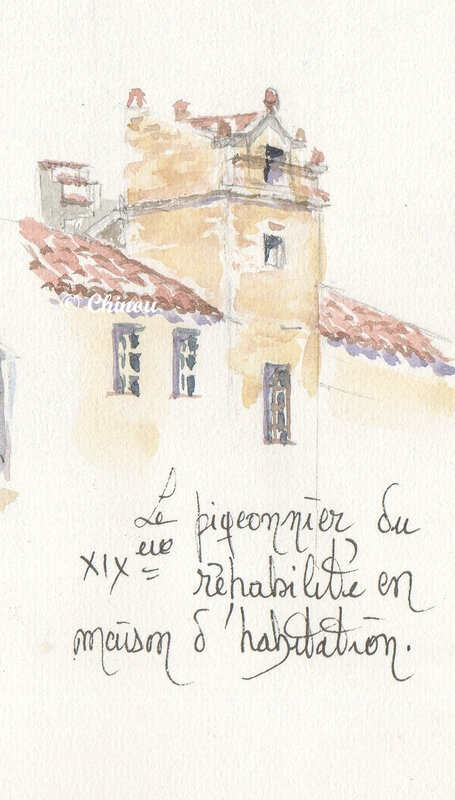 © Chinou
Le pigeonnier du
XIXème réhabilité en
maison d'habitation.